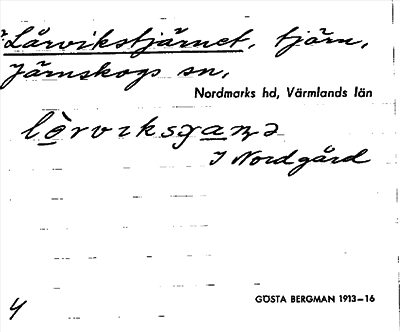 Lårvikstjärnet, tjärn,
Järnskogs sn,
Nordmarks hd, Värmlands län
I Nordgård
GÖSTA BERGMAN 1913–16
4